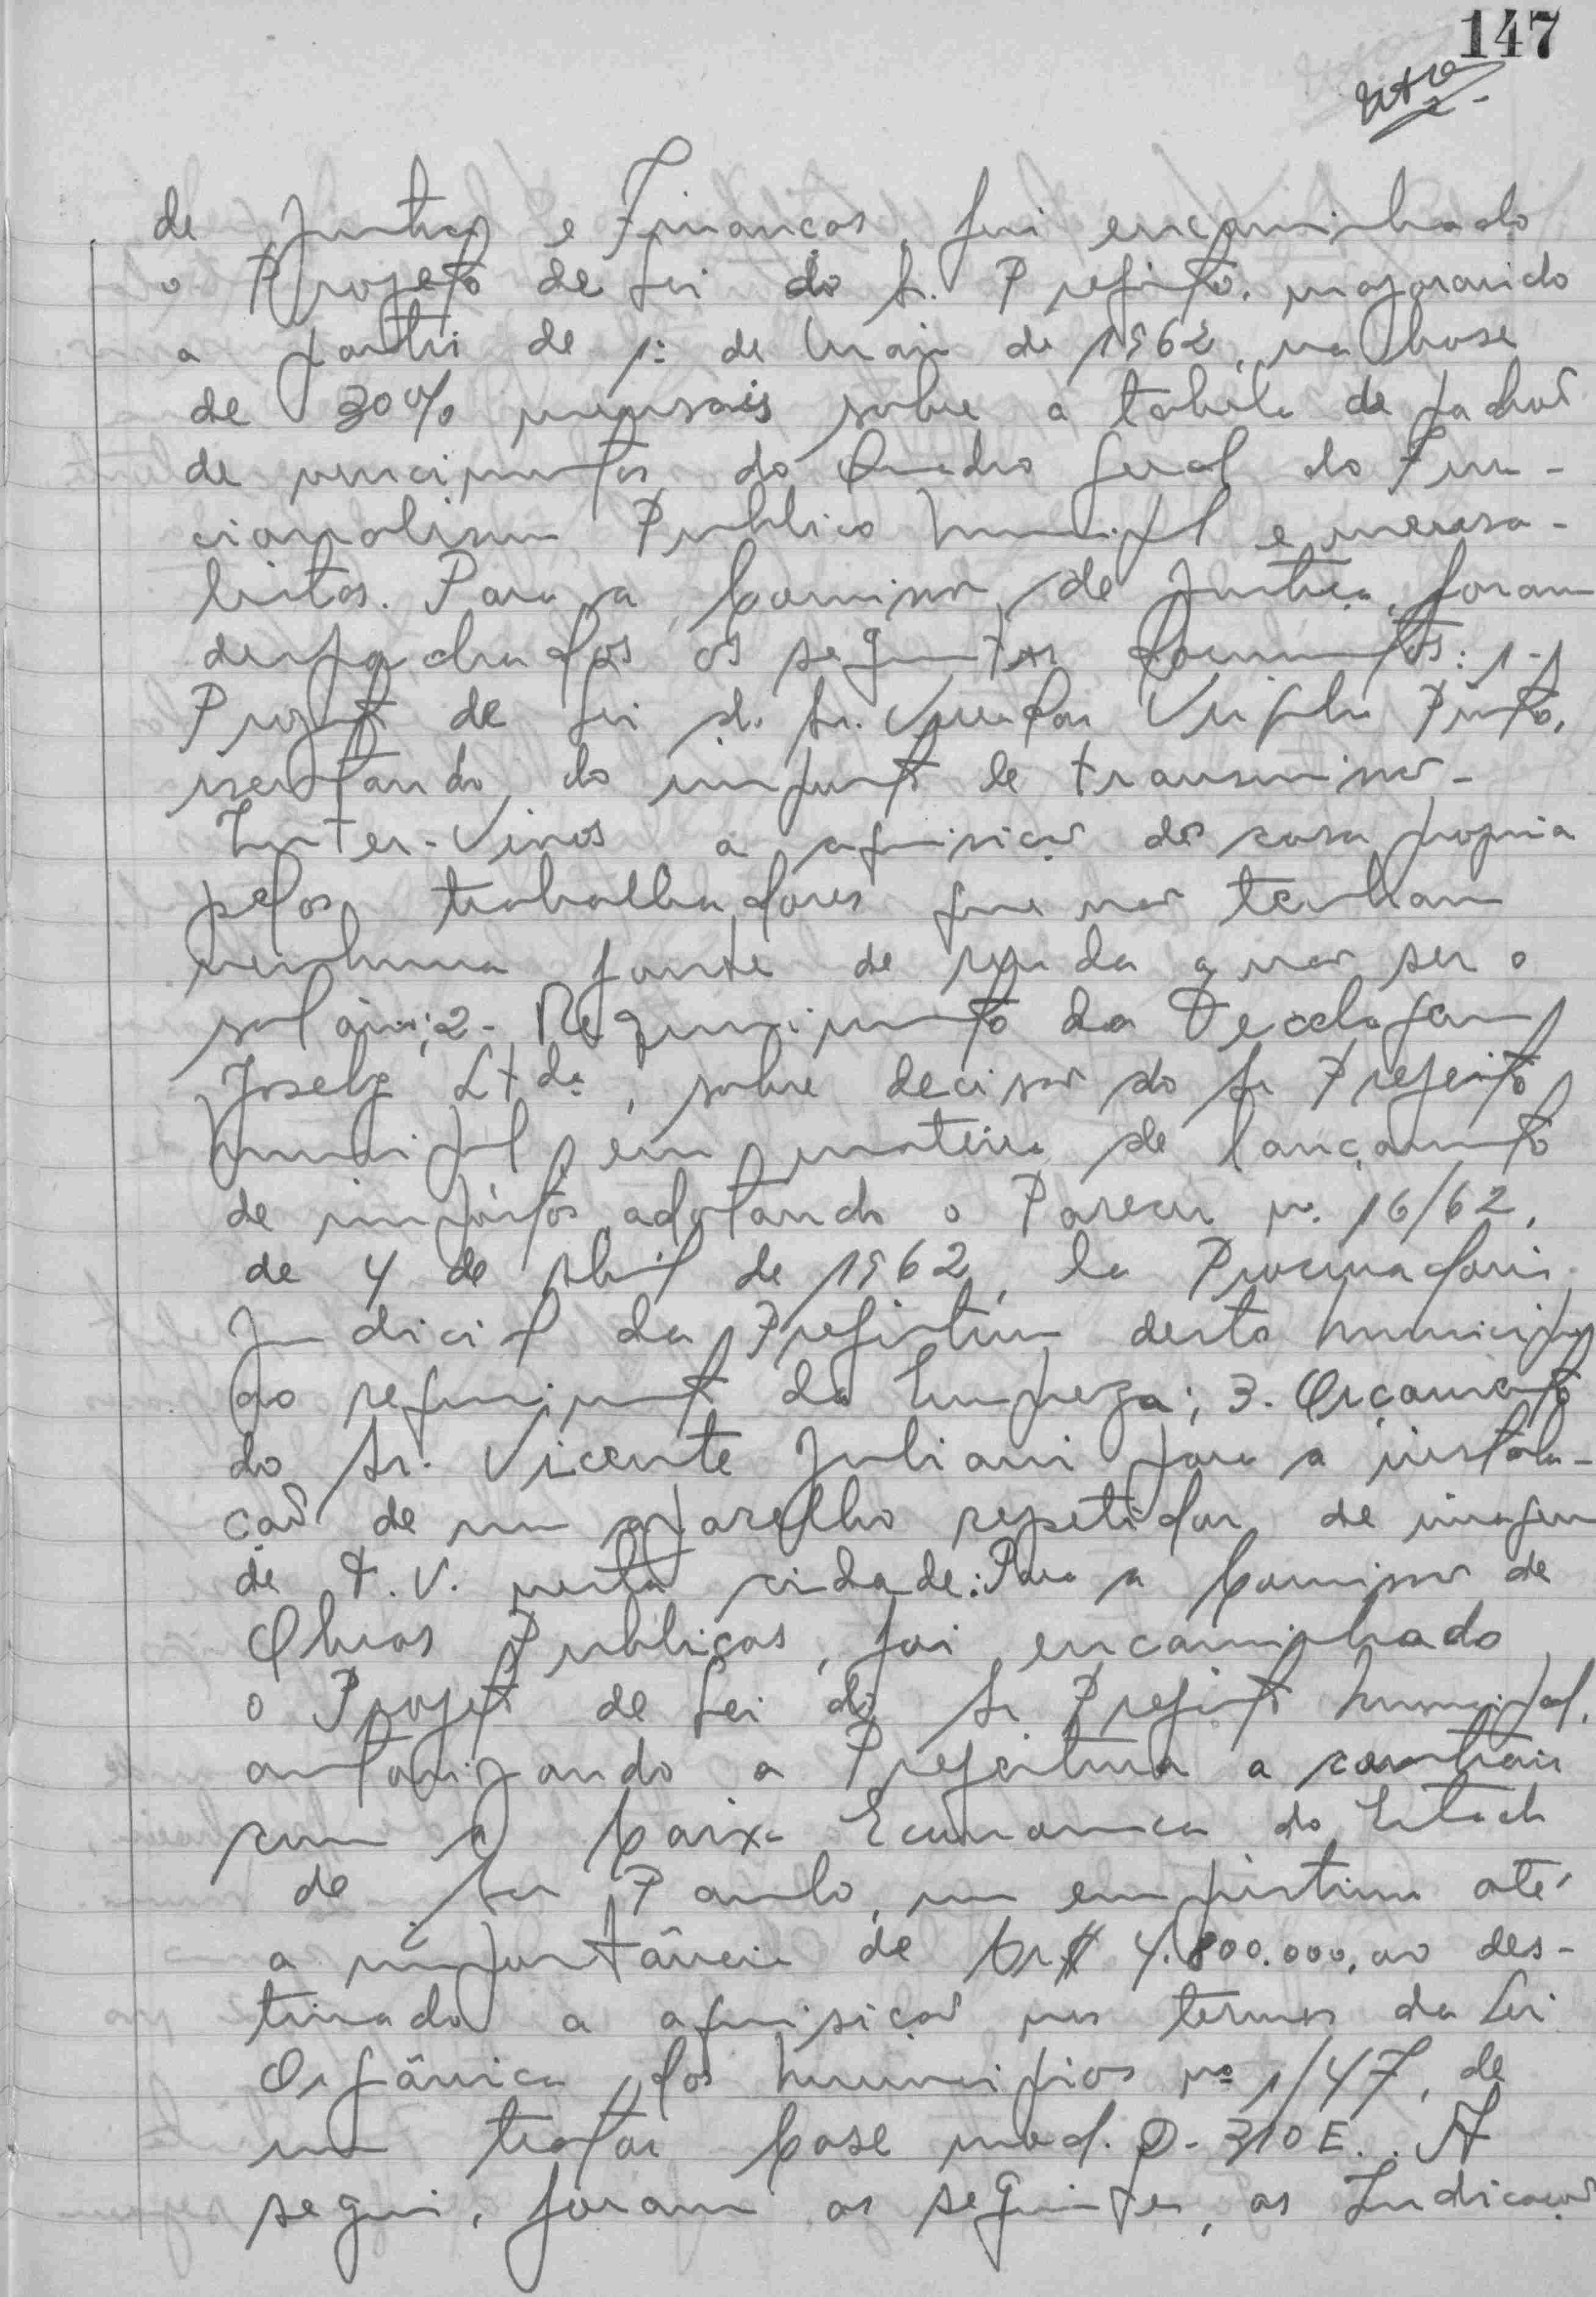 147
de Justiça e Finanças, foi encaminhado
o Projeto de Lei do Sr. Prefeito, majorando
a partir de 1º de Maio de 1962, na base
de 30% mensais sobre a tabela de padrão
de vencimentos do Quadro Geral do Fun-
cionalismo Publico Municipal e mensa-
listas. Para a Comissão de Justiça, foram
despachados os seguintes documentos: 1-)
Projeto de Lei do Sr. Vereador Virgilio Pinto,
isentando do imposto de transmissão-
Inter-Vivos a aquisição de casa propria
pelos trabalhadores que não tenham
nenhuma fonte de renda a não ser o
salário; 2- Requerimento da Tecelagem
Joselg Ltda, sobre decisão do Sr Prefeito
Municipal em materia de lançamento
de impôstos, adotando o Parecer nº. 16/62,
de 4 de Abril de 1962, da Procuradoria
Judicial da Prefeitura desta municipio
ao requerimento da Empreza; 3. Orçamento
do Sr. Vicente Juliani para a instala-
ção de um aparelho repetidor de imagem
de T.V. nesta cidade: Para a Comissão de
Obras Publicas, foi encaminhado
o Projeto de Lei do Sr Prefeito Municipal,
autorizando a Prefeitura a contrair
com a Caixa Economica do Estado
de São Paulo, um emprestimo até
a importância de Cr$ 4.800.000,00 des-
tinado a aquisição nos termos da Lei
Orgânica dos Municipios nº 1/47, de
um trator Case mod. D-310E.. A
seguir, foram as seguintes, as Indicações